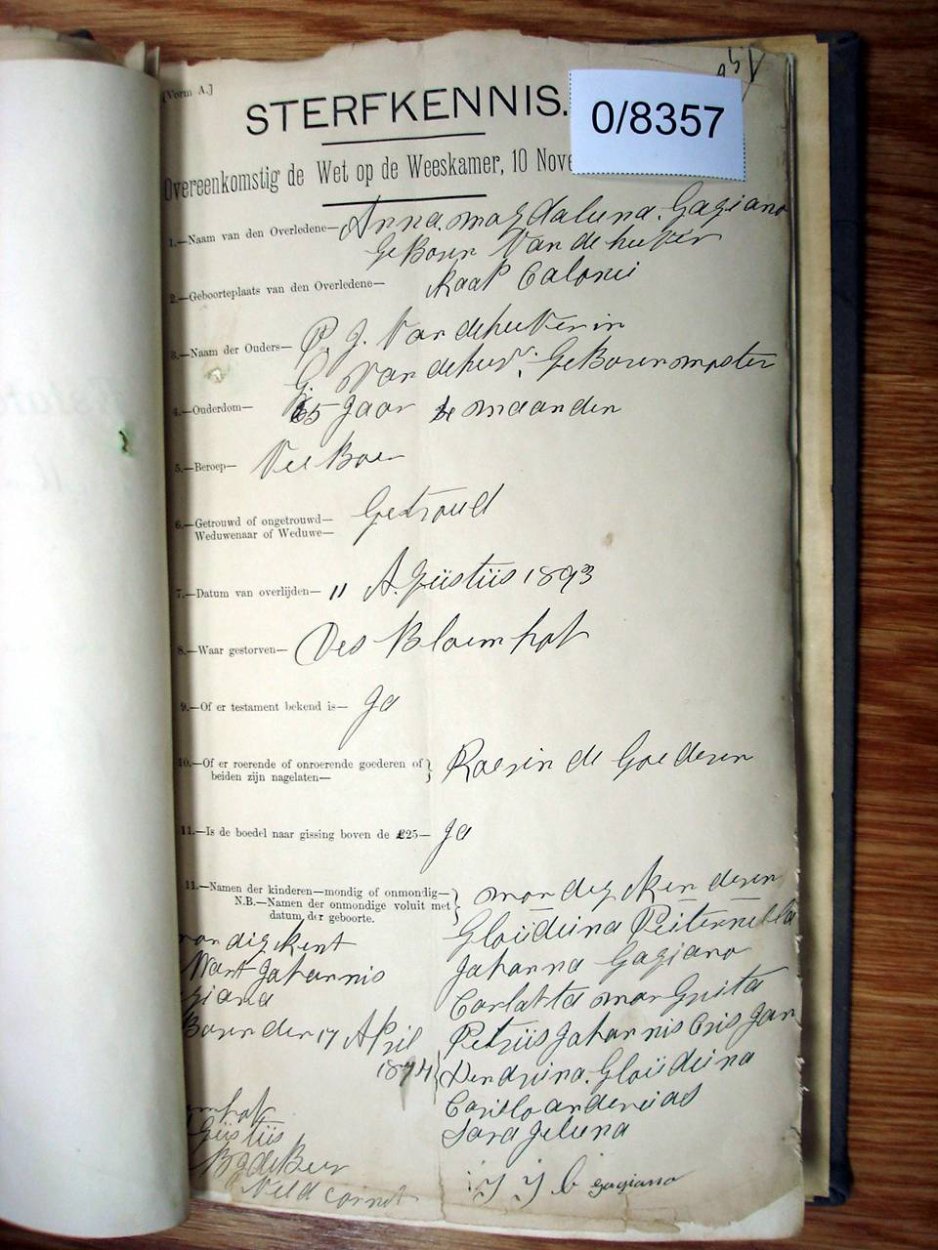 [Vorm A.]
STERFKENNIS.
0/8357
Overeenkomstig de Wet op de Weeskamer, 10 Nove
1.—Naam van den Overledene— Anna. magdaluna. Gagiano
GeBoren Van de heever
2.—Geboorteplaats van den Overledene— Kaap Coloni
3.—Naam der Ouders— P. J. Van deheeVer in
G. Van deheever. GeBoren
4.—Ouderdom— 65 Jaar maanden
5.—Beroep— Vee Boer
6.—Getrouwd of ongetrouwd— Getroud
Weduwenaar of Weduwe—
7.—Datum van overlijden— 11 Agustus 1893
8.—Waar gestorven— Des Bloemhof
9.—Of er testament bekend is— Ja
10.—Of er roerende of onroerende goederen of
beiden zijn nagelaten— Roerin de Goederen
11.—Is de boedel naar gissing boven de £25— Ja
11.—Namen der kinderen—mondig of onmondig— mondig kenderen
N.B.—Namen der onmondige voluit met
datum der geboorte.
Gloudiina Peiternella
Johanna Gagiano
Carlatta marGrita
Petrus Johannis Cris Jan
Hendriina. Gloudiina
Sara Jeluna
ondig kent
Wart Johannis
giano
Boren der 17 April
1874
mhof
Gustus
B J de Beer
Veld cornet
J J G Gagiano